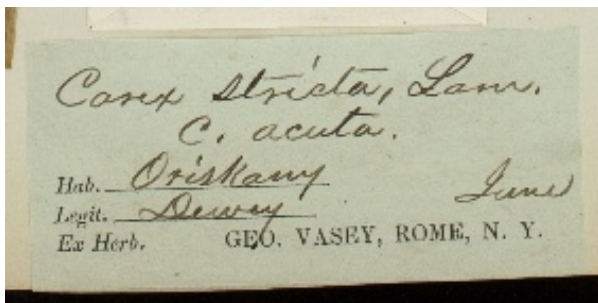 Carex stricta, Lam.
C. acuta.
Hab. Oriskany
June
Legit. Dewey
Ex Herb. GEO. VASEY, ROME, N. Y.